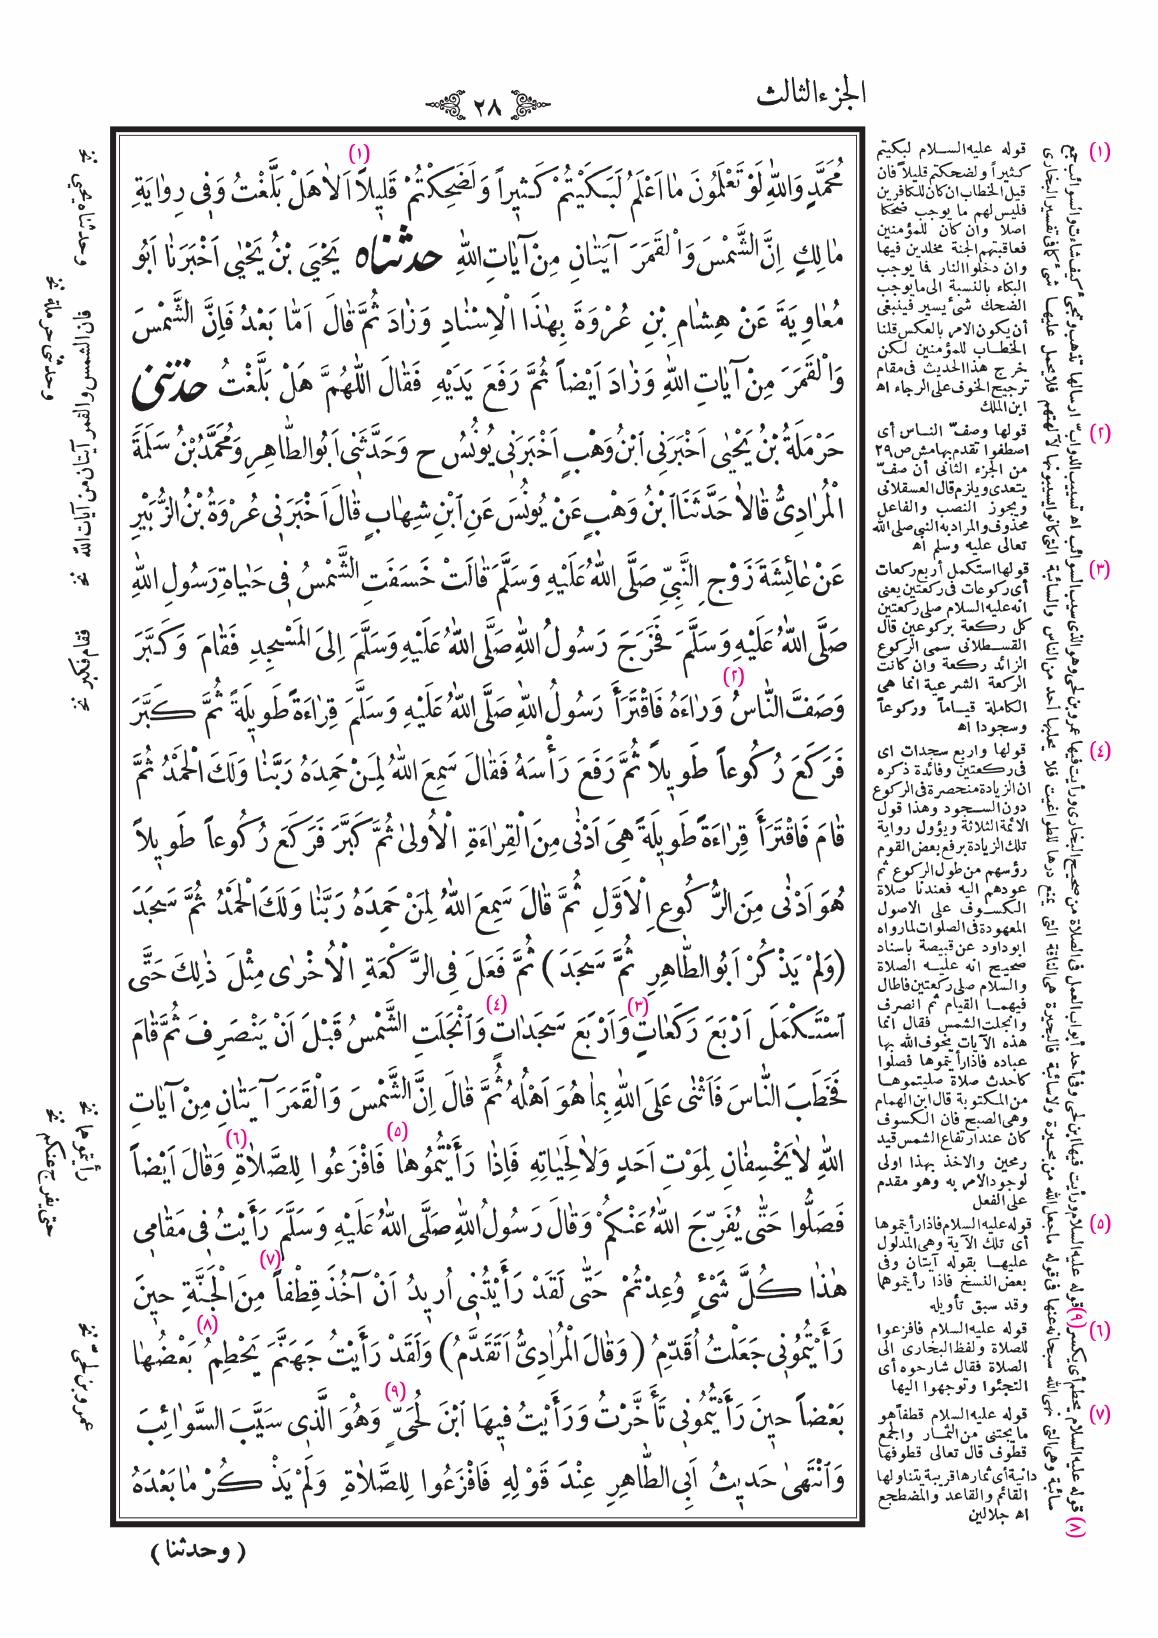 الجزء الثالث
٢٨
مُحَمَّدٍ وَاللّٰهِ لَوْ تَعْلَمُونَ مَا اَعْلَمُ لَبَكَيْتُمْ كَثٖيراً وَلَضَحِكْتُمْ قَلٖيلاً (١) اَلاٰ هَلْ بَلَّغْتُ وَفٖى رِوٰايَةِ
مٰالِكٍ اِنَّ الشَّمْسَ وَالْقَمَرَ آيَتٰانِ مِنْ آيٰاتِ اللّٰهِ حدثناه يَحْيَى بْنُ يَحْيٰى اَخْبَرَنٰا اَبُو
مُعٰاوِيَةَ عَنْ هِشٰامِ بْنِ عُرْوَةَ بِهٰذَا الْاِسْنٰادِ وَزٰادَ ثُمَّ قٰالَ اَمّٰا بَعْدُ فَاِنَّ الشَّمْسَ
وَالْقَمَرَ مِنْ آيٰاتِ اللّٰهِ وَزٰادَ اَيْضاً ثُمَّ رَفَعَ يَدَيْهِ فَقٰالَ اللّٰهُمَّ هَلْ بَلَّغْتُ حدثنى
حَرْمَلَةُ بْنُ يَحْيٰى اَخْبَرَنِى ابْنُ وَهْبٍ اَخْبَرَنٖى يُونُسُ ح وَحَدَّثَنٖى اَبُو الطّٰاهِرِ وَمُحَمَّدُ بْنُ سَلَمَةَ
الْمُرٰادِىُّ قٰالاٰ حَدَّثَنَا ابْنُ وَهْبٍ عَنْ يُونُسَ عَنِ ابْنِ شِهٰابٍ قٰالَ اَخْبَرَنٖى عُرْوَةُ بْنُ الزُّبَيْرِ
عَنْ عٰائِشَةَ زَوْجِ النَّبِيِّ صَلَّى اللّٰهُ عَلَيْهِ وَسَلَّمَ قٰالَتْ خَسَفَتِ الشَّمْسُ فٖى حَيٰاةِ رَسُولِ اللّٰهِ
صَلَّى اللّٰهُ عَلَيْهِ وَسَلَّمَ فَخَرَجَ رَسُولُ اللّٰهِ صَلَّى اللّٰهُ عَلَيْهِ وَسَلَّمَ اِلَى الْمَسْجِدِ فَقٰامَ وَكَبَّرَ
وَصَفَّ النّٰاسُ (٢) وَرٰاءَهُ فَاقْتَرَأَ رَسُولُ اللّٰهِ صَلَّى اللّٰهُ عَلَيْهِ وَسَلَّمَ قِرٰاءَةً طَوٖيلَةً ثُمَّ كَبَّرَ
فَرَكَعَ رُكُوعاً طَوٖيلاً ثُمَّ رَفَعَ رَأْسَهُ فَقٰالَ سَمِعَ اللّٰهُ لِمَنْ حَمِدَهُ رَبَّنٰا وَلَكَ الْحَمْدُ ثُمَّ
قٰامَ فَاقْتَرَأَ قِرٰاءَةً طَوٖيلَةً هِىَ اَدْنٰى مِنَ الْقِرٰاءَةِ الْاُولىٰ ثُمَّ كَبَّرَ فَرَكَعَ رُكُوعاً طَوٖيلاً
هُوَ اَدْنٰى مِنَ الرُّكُوعِ الْاَوَّلِ ثُمَّ قٰالَ سَمِعَ اللّٰهُ لِمَنْ حَمِدَهُ رَبَّنٰا وَلَكَ الْحَمْدُ ثُمَّ سَجَدَ
(وَلَمْ يَذْكُرْ اَبُو الطّٰاهِرِ ثُمَّ سَجَدَ) ثُمَّ فَعَلَ فِى الرَّكْعَةِ الْاُخْرٰى مِثْلَ ذٰلِكَ حَتَّى
اسْتَكْمَلَ اَرْبَعَ رَكَعٰاتٍ (٣) وَاَرْبَعَ سَجَدٰاتٍ (٤) وَانْجَلَتِ الشَّمْسُ قَبْلَ اَنْ يَنْصَرِفَ ثُمَّ قٰامَ
فَخَطَبَ النّٰاسَ فَاَثْنٰى عَلَى اللّٰهِ بِمٰا هُوَ اَهْلُهُ ثُمَّ قٰالَ اِنَّ الشَّمْسَ وَالْقَمَرَ آيَتٰانِ مِنْ آيٰاتِ
اللّٰهِ لاٰ يَخْسِفٰانِ لِمَوْتِ اَحَدٍ وَلاٰ لِحَيٰاتِهِ فَاِذٰا رَأَيْتُمُوهٰا (٥) فَافْزَعُوا لِلصَّلاٰةِ (٦) وَقٰالَ اَيْضاً
فَصَلُّوا حَتّٰى يُفَرِّجَ اللّٰهُ عَنْكُمْ وَقٰالَ رَسُولُ اللّٰهِ صَلَّى اللّٰهُ عَلَيْهِ وَسَلَّمَ رَأَيْتُ فٖى مَقٰامٖى
هٰذٰا كُلَّ شَىْءٍ وُعِدْتُمْ حَتّٰى لَقَدْ رَأَيْتُنٖى اُرٖيدُ اَنْ آخُذَ قِطْفاً (٧) مِنَ الْجَنَّةِ حٖينَ
رَأَيْتُمُونٖى جَعَلْتُ اُقَدِّمُ (وَقٰالَ الْمُرٰادِىُّ اَتَقَدَّمُ) وَلَقَدْ رَأَيْتُ جَهَنَّمَ يَحْطِمُ (٨) بَعْضُهٰا
بَعْضاً حٖينَ رَأَيْتُمُونٖى تَأَخَّرْتُ وَرَأَيْتُ فٖيهَا ابْنَ لُحَىٍّ (٩) وَهُوَ الَّذٖى سَيَّبَ السَّوٰائِبَ
وَانْتَهىٰ حَدٖيثُ اَبِى الطّٰاهِرِ عِنْدَ قَوْلِهِ فَافْزَعُوا لِلصَّلاٰةِ وَلَمْ يَذْكُرْ مٰا بَعْدَهُ
(وحدثنا)
(١) قوله عليه السلام لبكيتم
كثيراً ولضحكتم قليلاً فان
قيل الخطاب ان كان للكافرين
فليس لهم ما يوجب ضحكا
اصلا وان كان للمؤمنين
فعاقبتهم الجنة مخلدين فيها
وان دخلوا النار فما يوجب
البكاء بالنسبة الى ما يوجب
الضحك شئ يسير فينبغى
أن يكون الامر بالعكس قلنا
الخطاب للمؤمنين لكن
خرج هذا الحديث فى مقام
ترجيح الخوف على الرجاء اه
ابن الملك
(٢) قولها وصفّ الناس أى
اصطفوا تقدم بهامش ص٢٩
من الجزء الثانى أن صفّ
يتعدى ويلزم قال العسقلانى
ويجوز النصب والفاعل
محذوف والمراد به النبى صلى الله
تعالى عليه وسلم اه
(٣) قولها استكمل أربع ركعات
أى ركوعات فى ركعتين يعنى
انه عليه السلام صلى ركعتين
كل ركعة بركوعين قال
القسطلانى سمى الركوع
الزائد ركعة وان كانت
الركعة الشرعية انما هى
الكاملة قياماً وركوعاً
وسجودا اه
(٤) قولها واربع سجدات اى
فى ركعتين وفائدة ذكره
ان الزيادة منحصرة فى الركوع
دون السجود وهذا قول
الائمة الثلاثة ويؤول رواية
تلك الزيادة برفع بعض القوم
رؤسهم من طول الركوع ثم
عودهم اليه فعندنا صلاة
الكسوف على الاصول
المعهودة فى الصلوات لما رواه
ابو داود عن قبيصة باسناد
صحيح انه عليه الصلاة
والسلام صلى ركعتين فاطال
فيهما القيام ثم انصرف
وانجلت الشمس فقال انما
هذه الآيات يخوف الله بها
عباده فاذا رأيتموها فصلوا
كاحدث صلاة صليتموها
من المكتوبة قال ابن الهمام
وهى الصبح فان الكسوف
كان عند ارتفاع الشمس قيد
رمحين والاخذ بهذا اولى
لوجود الامر به وهو مقدم
على الفعل
(٥) قوله عليه السلام فاذا رأيتموها
أى تلك الآية وهى المدلول
عليها بقوله آيتان وفى
بعض النسخ فاذا رأيتموهما
وقد سبق تأويله
(٦) قوله عليه السلام فافزعوا
للصلاة ولفظ البخارى الى
الصلاة فقال شارحوه أى
التجئوا وتوجهوا اليها
(٧) قوله عليه السلام قطفاً هو
ما يجتنى من الثمار والجمع
قطوف قال تعالى قطوفها
دانية أى ثمارها قريبة يتناولها
القائم والقاعد والمضطجع
اه جلالين
(٨) قوله عليه السلام يحطم أى يكسر (٩) قوله عليه السلام ورأيت فيها ابن لحى وفى أحد أبواب العمل فى الصلاة من صحيح البخارى ورأيت فيها عمرو بن لحى وهو الذى سيب السوائب اه تسييب الدوابّ ارسالها تذهب وتجئ كيف شاءت والسوائب جمع
سائبة وهى التى نهى الله سبحانه عنها فى قوله ماجعل الله من بحيرة ولا سائبة فالبحيرة هى الناقة التى يمنع درها للطواغيت فلا يحلبها أحد من الناس والسائبة التى كانوا يسيبونها لآلهتهم فلا يحمل عليها شئ كما فى تفسير البخارى
وحدثناه يحيى نخ
وحدثنى حرملة نخ
فان الشمس والقمر آيتان من آيات الله نخ
فقام فكبر نخ
رأيتموهما نخ
حتى يفرج عنكم نخ
عمرو بن لحىّ نخ